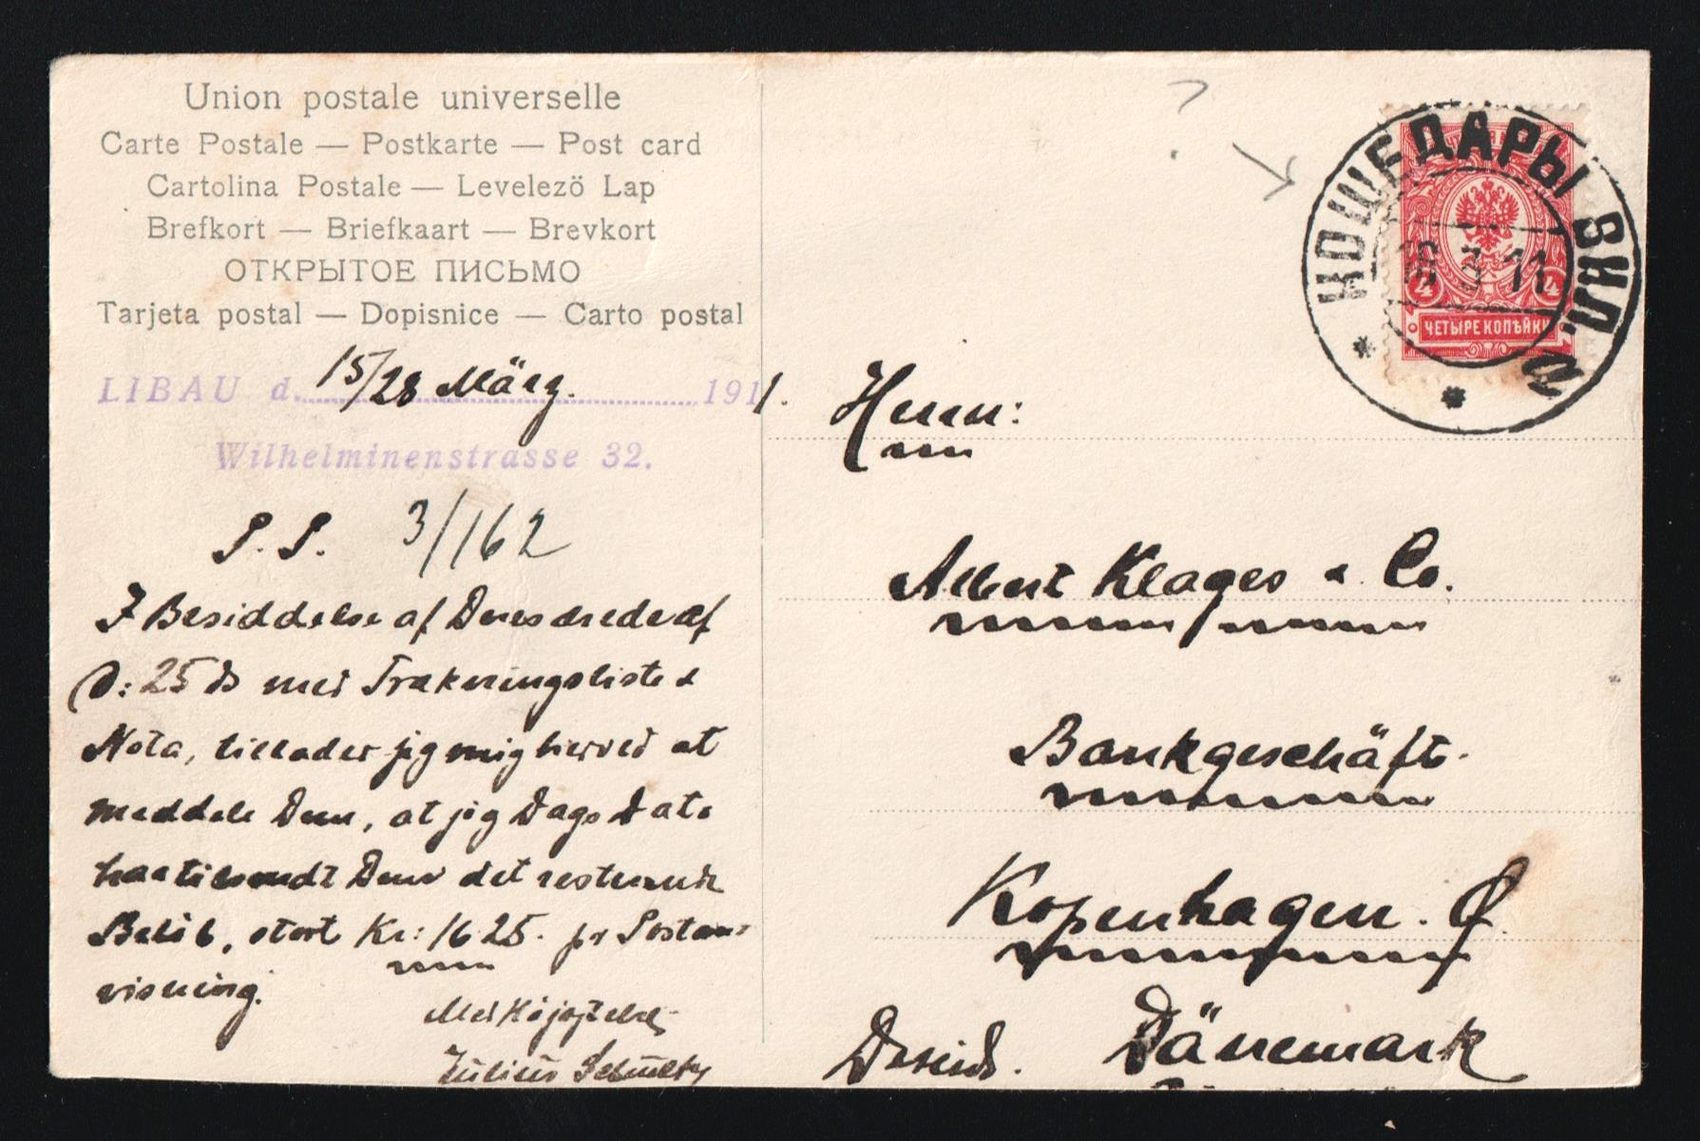 Union postale universelle
Carte Postale — Postkarte — Post card
Cartolina Postale — Levelezö Lap
Brefkort — Briefkaart — Brevkort
ОТКРЫТОЕ ПИСЬМО
Tarjeta postal — Dopisnice — Carto postal
LIBAU d. 15/28 März. 1911.
Wilhelminenstrasse 32.
P.P. 3/162
I Besiddelse af Deres ærede af
D: 25 ds med Trækningsliste &
Nota, tillader jeg mig herved at
meddele Dem, at jeg Dags Dato
har tilsendt Dem det resterende
Beløb, stort Kr: 1625. pr Postan-
visning.
Med Højagtelse
Julius Schultz
?
КОШЕДАРЫ ВИЛ.
11
4 4
ЧЕТЫРЕ КОПѢЙКИ
Herrn:
Albert Klages & Co.
Bankgeschäft.
Kopenhagen. Ø
Dänemark